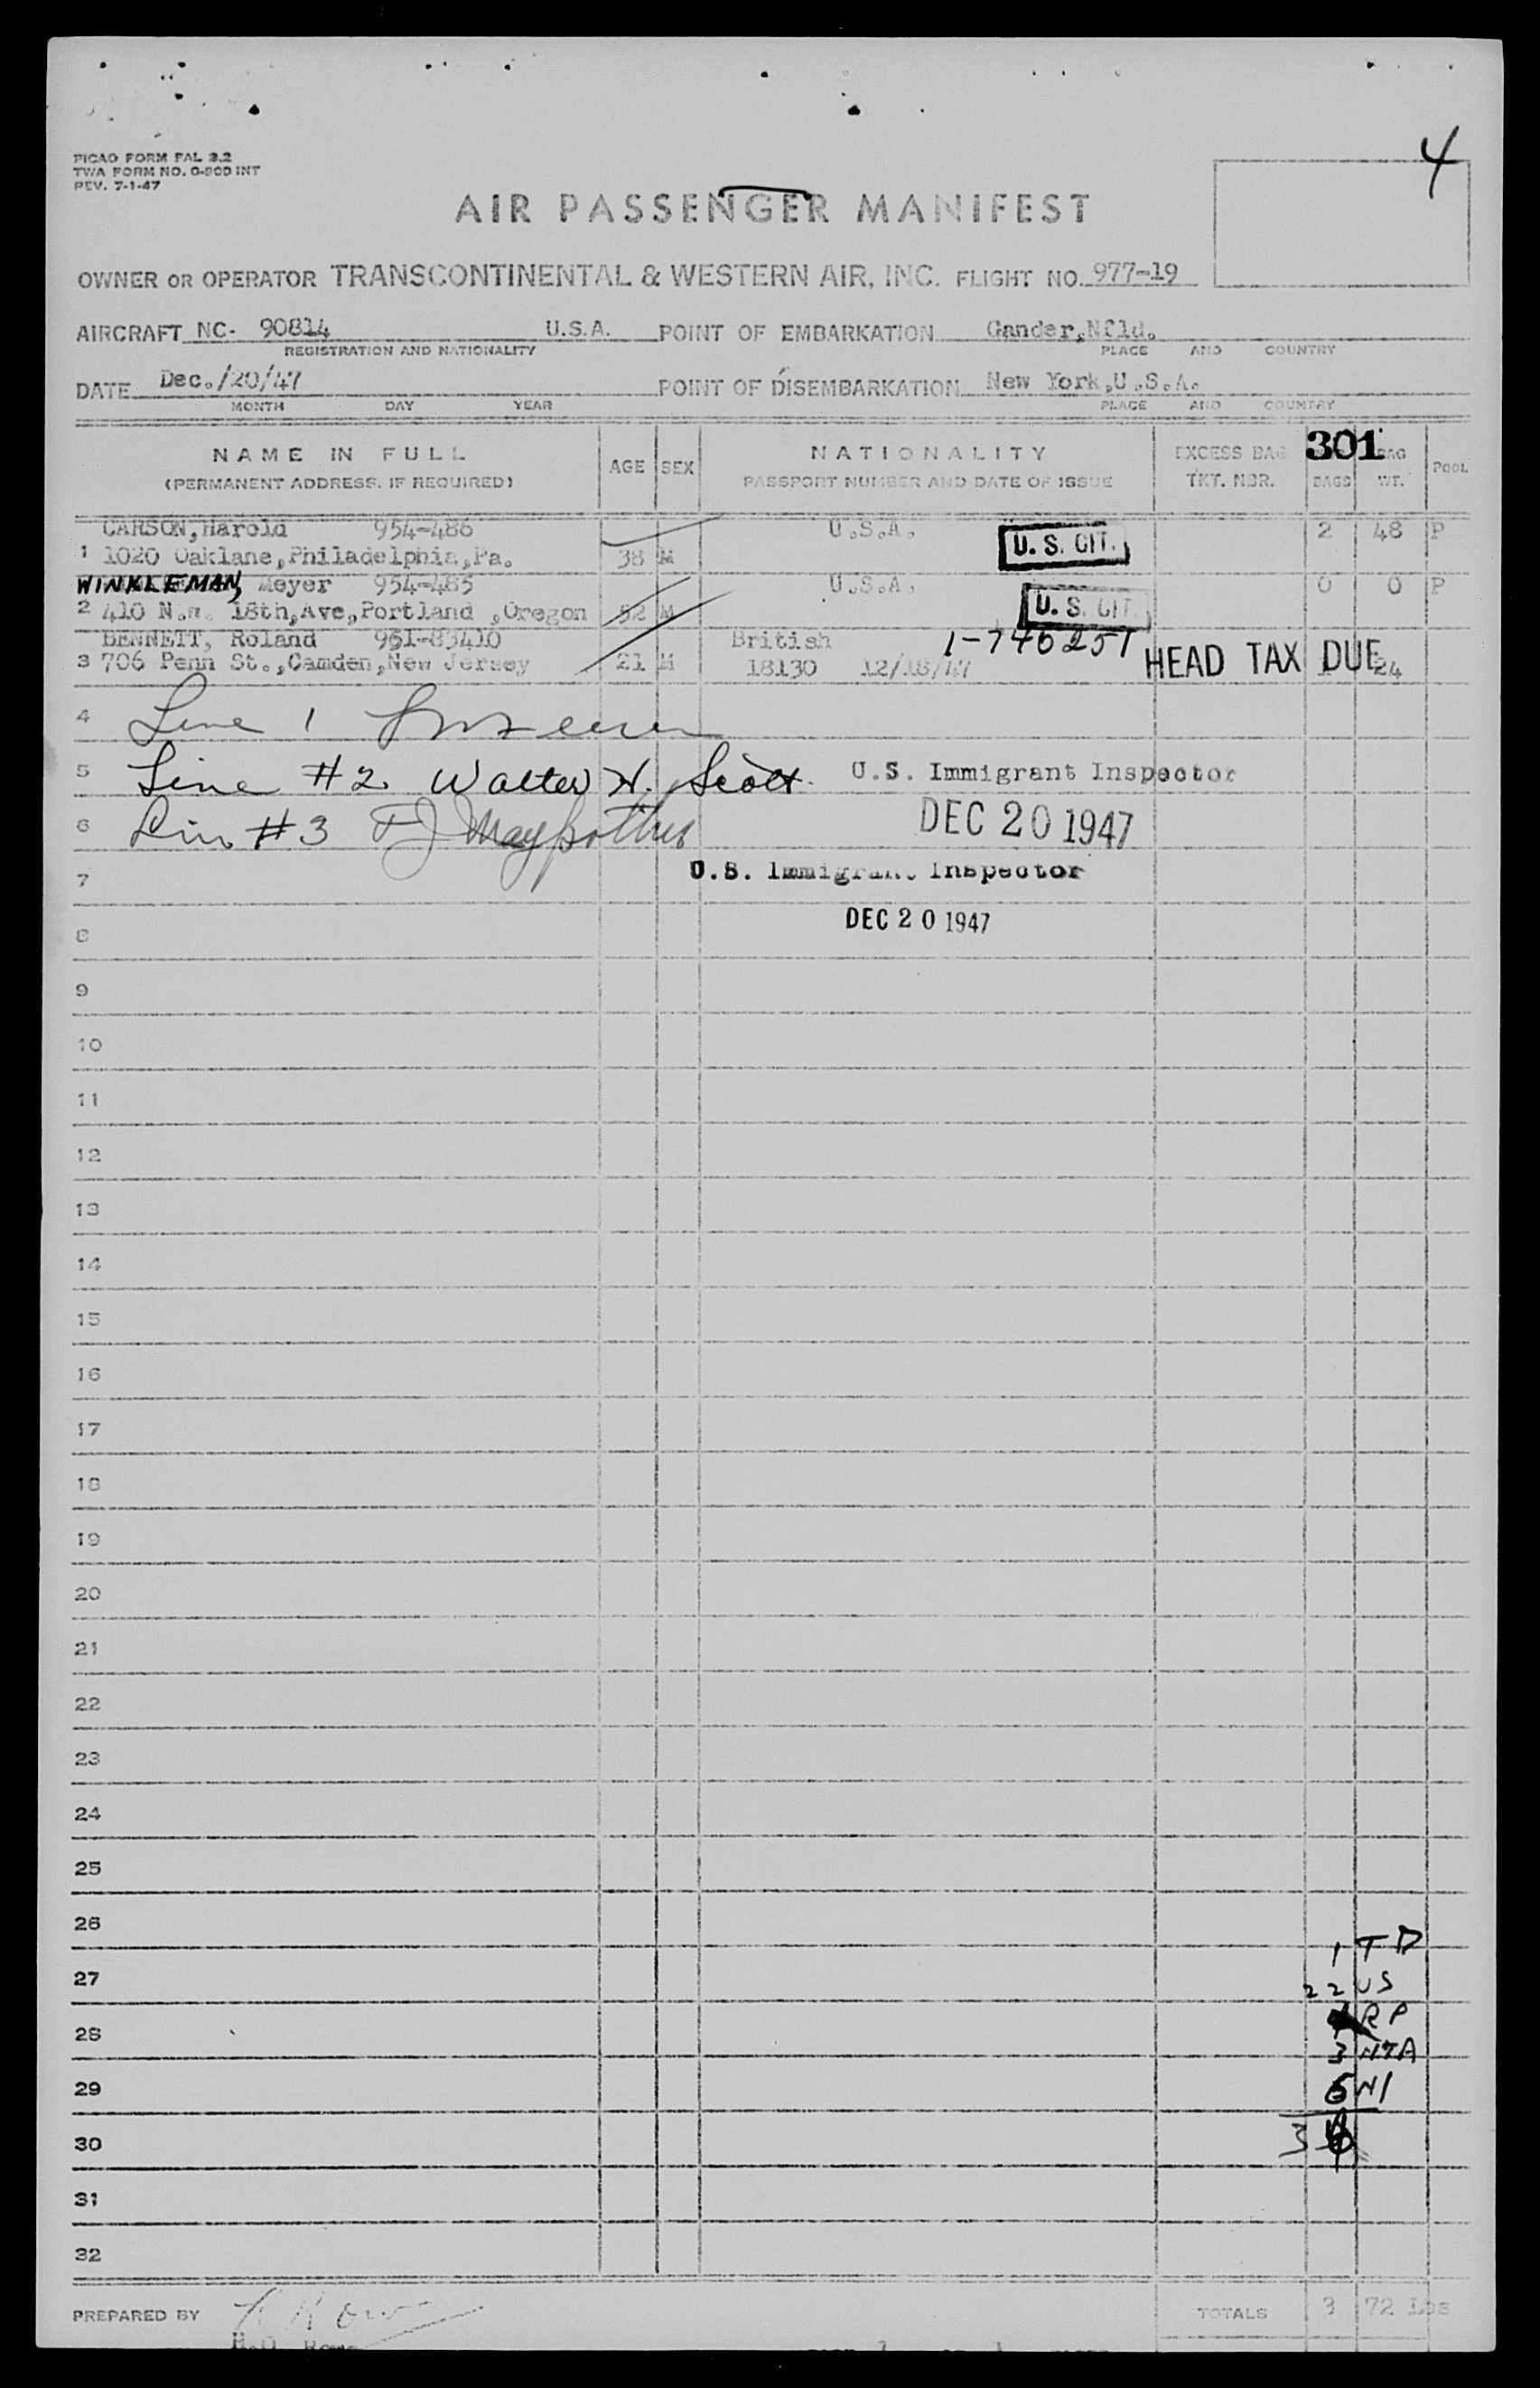 PICAO FORM FAL 3.2
TWA FORM NO. O-80D INT
REV. 7-1-47
4
AIR PASSENGER MANIFEST
OWNER OR OPERATOR TRANSCONTINENTAL & WESTERN AIR, INC. FLIGHT NO. 977-19
AIRCRAFT NC- 90814 U.S.A. POINT OF EMBARKATION Gander,Nfld.
REGISTRATION AND NATIONALITY PLACE AND COUNTRY
DATE Dec./20/47 POINT OF DISEMBARKATION New York,U.S.A.
MONTH DAY YEAR PLACE AND COUNTRY
NAME IN FULL AGE SEX NATIONALITY EXCESS BAG 301 BAG POOL
(PERMANENT ADDRESS, IF REQUIRED) PASSPORT NUMBER AND DATE OF ISSUE TKT. NBR. BAGS WT.
CARSON,Harold 954-486 U.S.A. U. S. CIT. 2 48 P
1 1020 Oaklane,Philadelphia,Pa. 38 M
WINKLEMAN, Meyer 954-485 U.S.A. U. S. CIT. 0 0 P
2 410 N.W. 18th,Ave,Portland ,Oregon 52 M
BENNETT, Roland 961-83410 British 1-746251
3 706 Penn St.,Camden,New Jersey 21 M 18130 12/18/47 HEAD TAX DUE 1 24
4 Line 1
5 Line #2 Walter H. Scott U.S. Immigrant Inspector
6 Line #3 DEC 20 1947
7 U.S. Immigrant Inspector
8 DEC 20 1947
9
10
11
12
13
14
15
16
17
18
19
20
21
22
23
24
25
26
1 TD
27
22 US
28 RP
3 NTA
29
6 NI
30 3
31
32
PREPARED BY TOTALS 3 72 Lbs